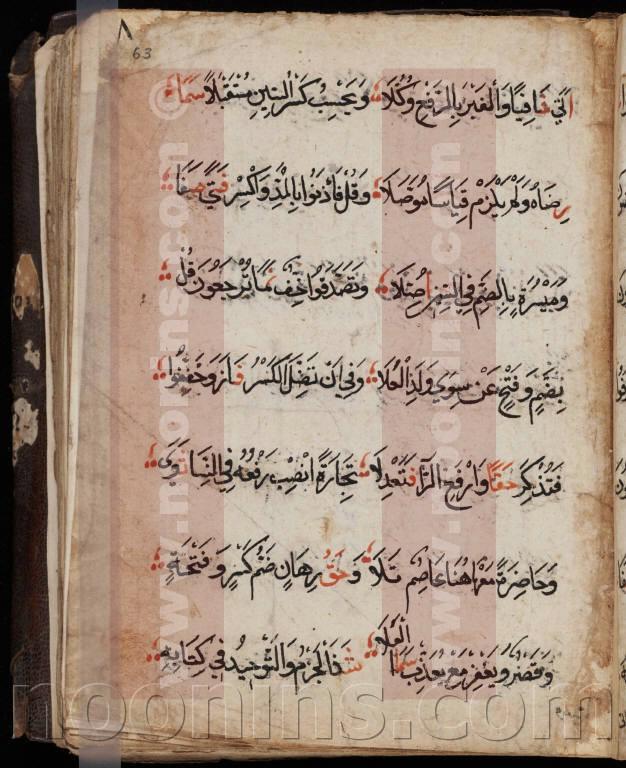 ٨
63
اتي شَافِيًا وَالْغَيْرُ بِالرَّفْعِ وُكِّلَا وَيَحْسِبُ كَسْرُ السِّينِ مُسْتَقْبَلًا سَمَا
رِضَاهُ وَلَمْ يَلْزَمْ قِيَاسًا مُؤَصَّلَا وَقُلْ فَأْذَنُوا بِالْمَدِّ وَاكْسِرْ فَتًى صَفَا
وَمَيْسُرَةٍ بِالضَّمِّ فِي السِّينِ اُصِّلَا وَتَصَدَّقُوا خِفٌّ نَمَا تُرْجَعُونَ قُلْ
بِضَمٍّ وَفَتْحٍ عَنْ سِوَي وَلَدِ الْعُلَا وَفِي اَنْ تَضِلَّ الْكَسْرُ فَازَ وَخَفَّفُوا
فَتُذْكِرَ حَقًّا وَارْفَعِ الرَّا فَتَعْدِلَا تِجَارَةٌ انْصِبْ رَفْعَهُ فِي النِّسَا ثَوَي
وَحَاضِرَةٌ مَعْهَا هُنَا عَاصِمٌ تَلَا وَحَقُّ رِهَانٍ ضَمُّ كَسْرٍ وَفَتْحَةٍ
وَقَصْرٌ وَيَغْفِرْ مَعْ يُعَذِّبْ سَمَا الْعُلَا شَذَا الْجَزْمِ وَالتَّوْحِيدُ فِي كِتَابِهِ
© www.noonins.com
www.noonins.com
noonins.com